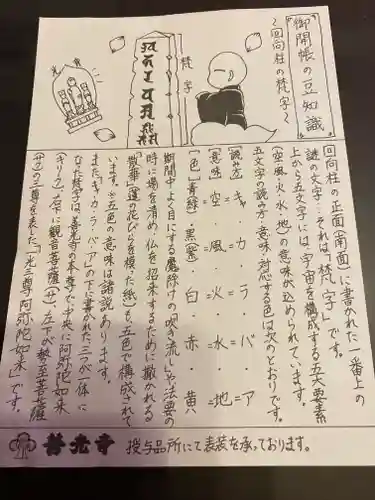 御開帳の豆知識
~回向柱の梵字~
梵字
回向柱の正面(南面)に書かれた一番上の
謎の文字…それは「梵字」です。
上から五文字には、宇宙を構成する五大要素
(空・風・火・水・地)の意味が込められています。
五文字の読み方・意味・対応する色は次のとおりです。
(読み方)=キャ・カ・ラ・バ・ア
(意味)=空・風・火・水・地
(色)=青(緑)・黒(紫)・白・赤・黄
期間中よく目にする魔除けの「吹き流し」や法要の
時に場を清め、仏を招来するために撒かれる
「散華」(蓮の花びらを模った紙)も、五色で構成されて
います。※五色の意味は諸説あります。
また、キャ・カ・ラ・バ・アの下に書かれた三つが一体に
なった梵字は、善光寺の本尊で、中央に阿弥陀如来
(キリク)、右に観音菩薩(サ)、左下が勢至菩薩
(サク)の三尊を表した「一光三尊阿弥陀如来」です。
善光寺 授与品所にて表装を承っております。